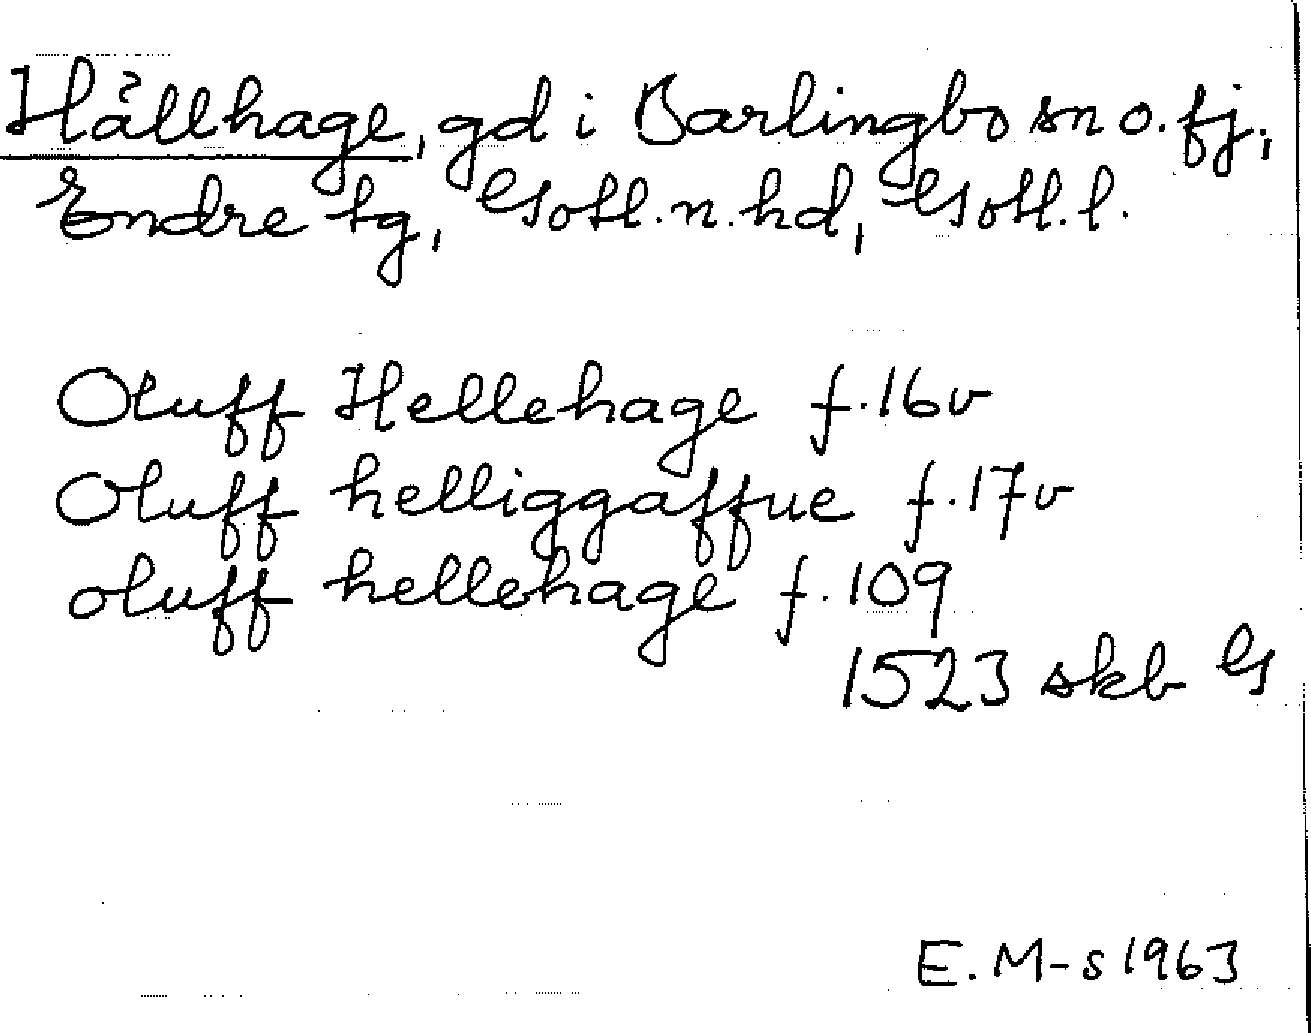 Hållhage, gd i Barlingbo sn o. fj.,
Endre tg, Gotl. n. hd, Gotl. l.
Oluff Hellehage f. 16v
Oluff helliggaffue f. 17v
oluff hellehage f. 109
1523 skb G
E. M-s 1963